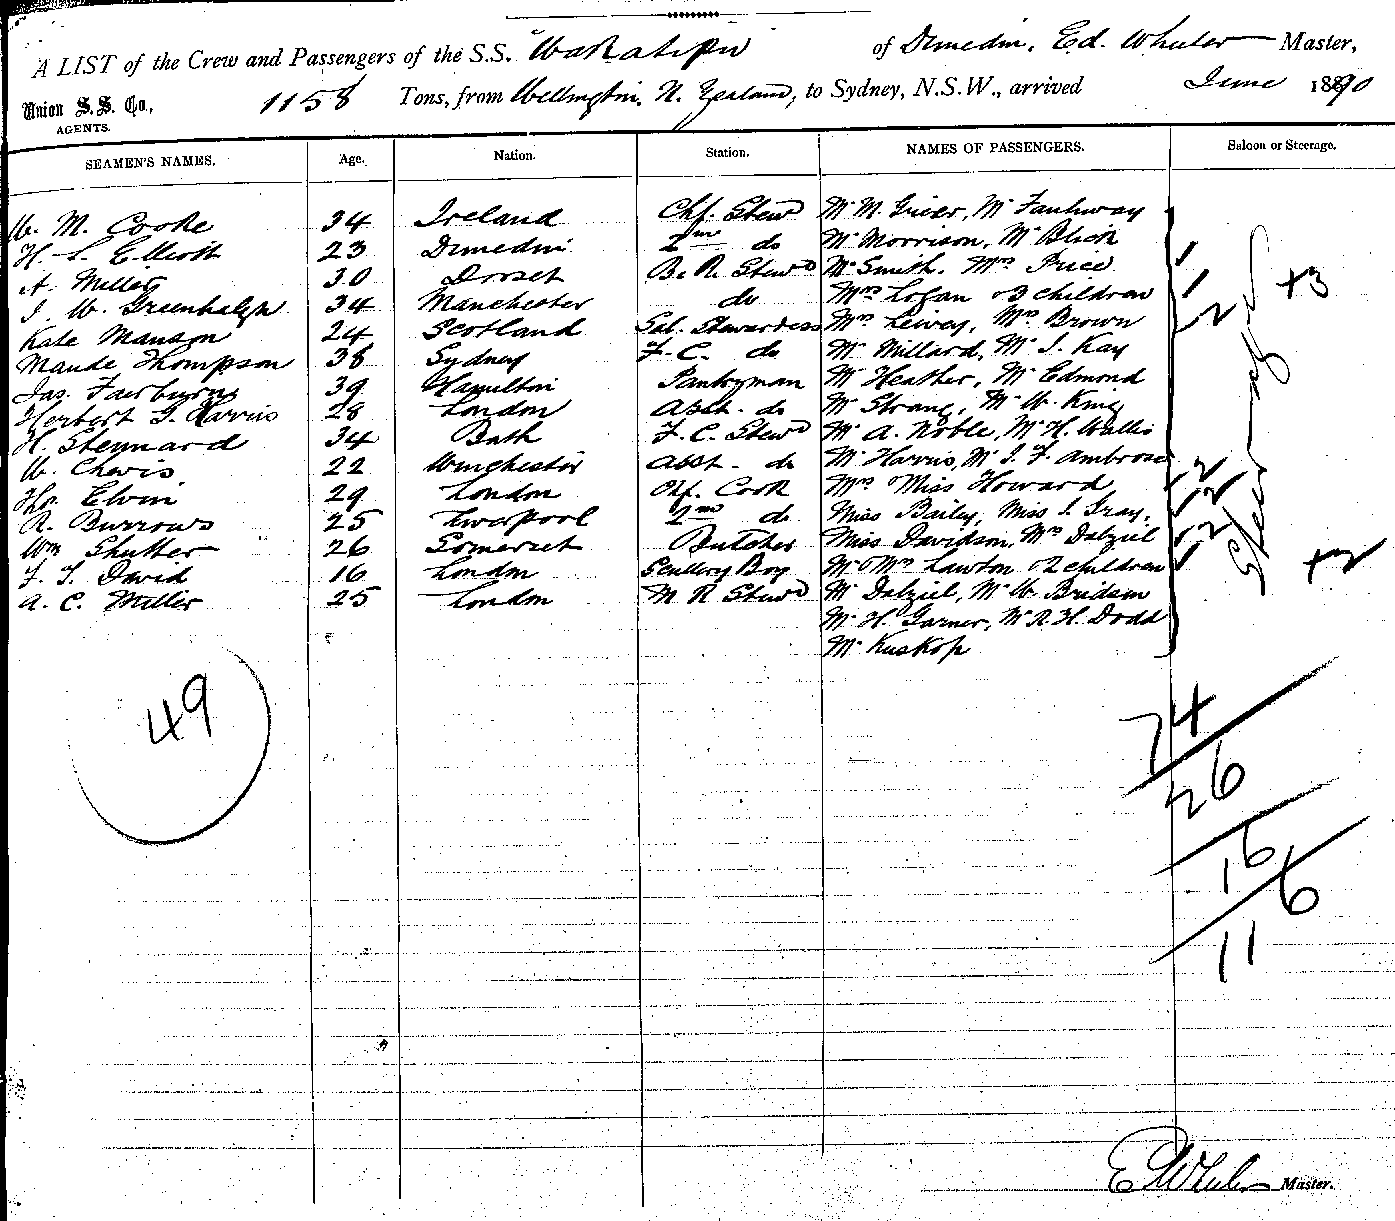 A LIST of the Crew and Passengers of the S.S. Wakatipu of Dunedin, Ed. Wheeler Master,
Union S.S. Co., AGENTS. 1158 Tons, from Wellington, N. Zealand, to Sydney, N.S.W., arrived June 1890
SEAMEN'S NAMES. Age. Nation. Station. NAMES OF PASSENGERS. Saloon or Steerage.
W. M. Cooke 34 Ireland Chf. Stewd Mr M. Grier, Mr
H. L. Elliott 23 Dunedin 2nd do Mr Morrison, Mr Blick
A. Miller 30 Dorset B. R. Stewd Mr Smith. Mrs Price
J. W. Greenhalgh 34 Manchester do Mrs Logan & 3 children
Kate Manson 24 Scotland Sal. Stewardess Mrs Brown
Maude Thompson 38 Sydney F. C. do Mr Millard, Mr J. Kay
Jas. Fairburn 39 Hamilton Pantryman Mr Heather, Mr Edmond
Herbert G. Harris 28 London Asst. do Mr Strang, Mr W. King
H. Steynard 34 Bath F. C. Stewd Mr A. Noble, Mr H. Wallis
W. Chevis 22 Winchester Asst. do Mr Harris, Mr J. F. Ambrose
Tho. Elvin 29 London Chf. Cook Mrs & Miss Howard
R. Burrows 25 Liverpool 2nd do Miss Baily, Miss J. Gray,
Wm Shutter 26 Somerset Butcher Miss Davidson, Mrs Dalziel
F. T. David 16 London Scullery Boy Mr & Mrs Lawton & 2 children
A. C. Miller 25 London M R Stewd Mr Dalziel, Mr W. Bridson
Mr H. Garner, Mr R. H. Dodd
Mr Kuskop
Steerage
+3
+2
49
74
26
16
6
11
E Wheeler Master.